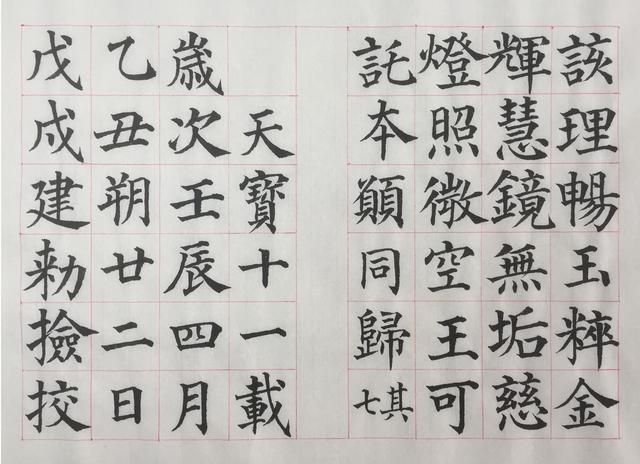 該理暢玉粹金
輝慧鏡無垢慈
燈照微空王可
託本願同歸其七
天寶十一載
歲次壬辰四月
乙丑朔廿二日
戊戌建勑撿挍